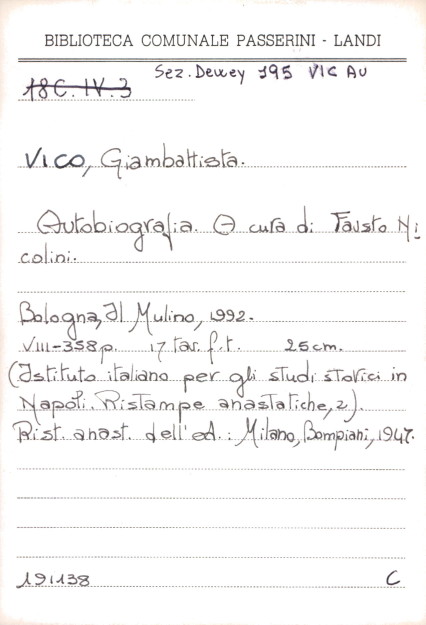 BIBLIOTECA COMUNALE PASSERINI - LANDI
Sez. Dewey 195 VIC Au
18C.IV.3
VICO, Giambattista.
Autobiografia. A cura di Fausto Ni
colini.
Bologna, Il Mulino, 1992.
VIII-358p. 17 tav. f.t. 25cm.
(Istituto italiano per gli studi storici in
Napoli. Ristampe anastatiche, 2).
Rist. anast. dell'ed.: Milano, Bompiani, 1947.
191138 C